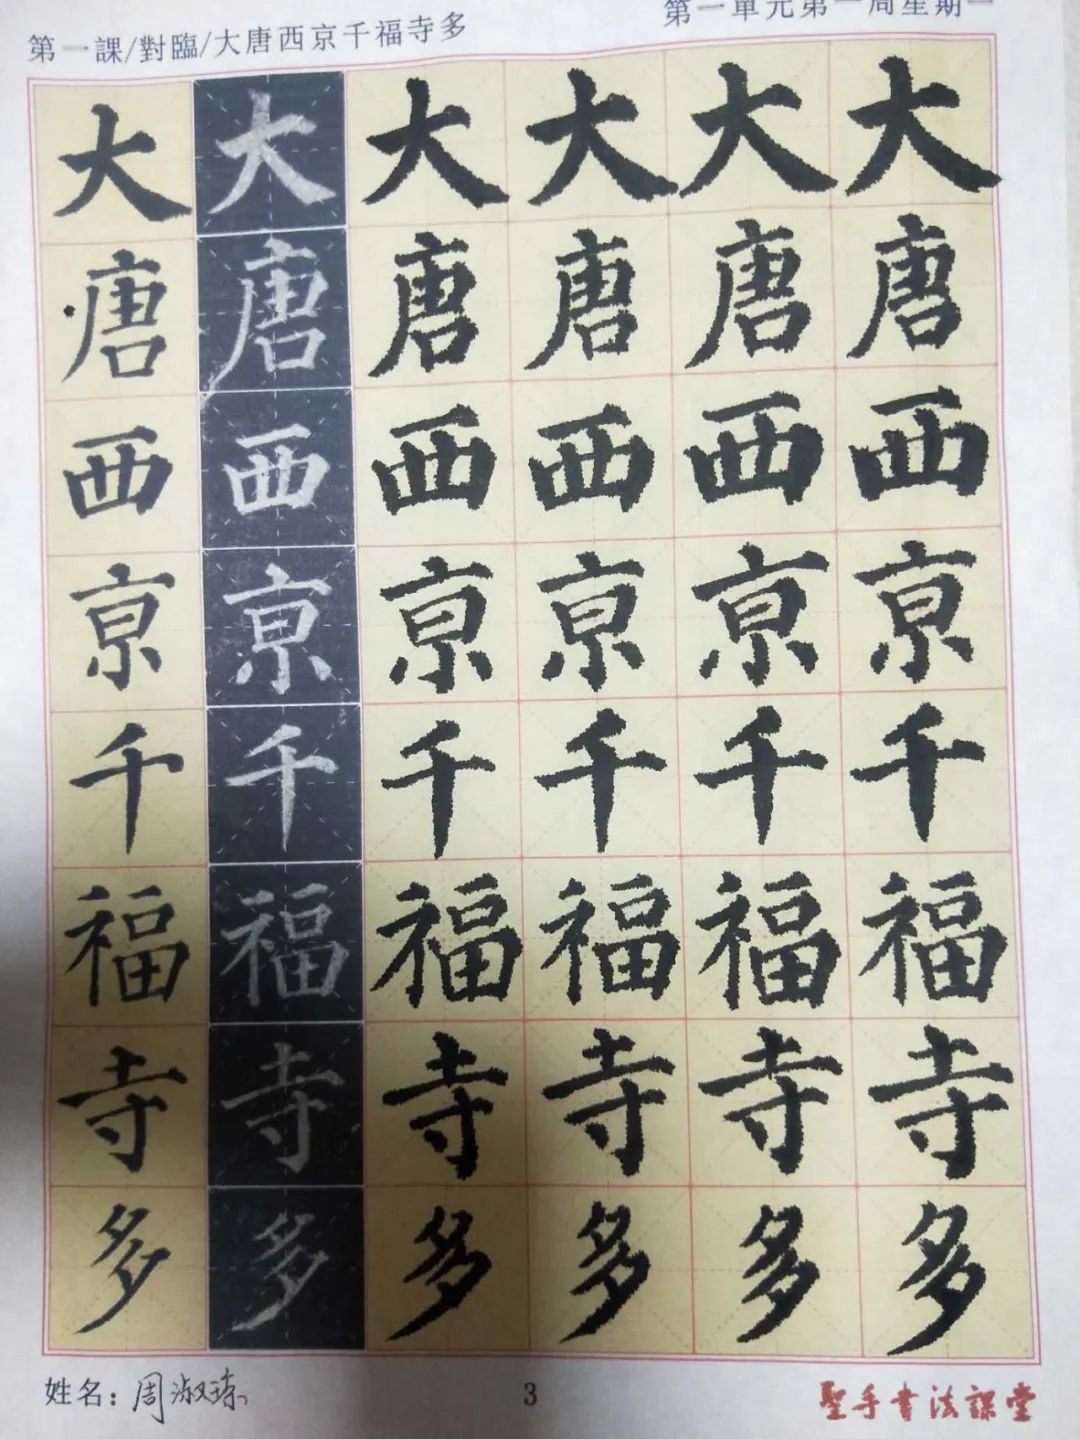 第一課/對臨/大唐西京千福寺多
第一單元第一周星期一
大 大 大 大 大 大
唐 唐 唐 唐 唐 唐
西 西 西 西 西 西
亰 亰 亰 亰 亰 亰
千 千 千 千 千 千
福 福 福 福 福 福
寺 寺 寺 寺 寺 寺
多 多 多 多 多 多
姓名：周淑臻
3
聖手書法課堂